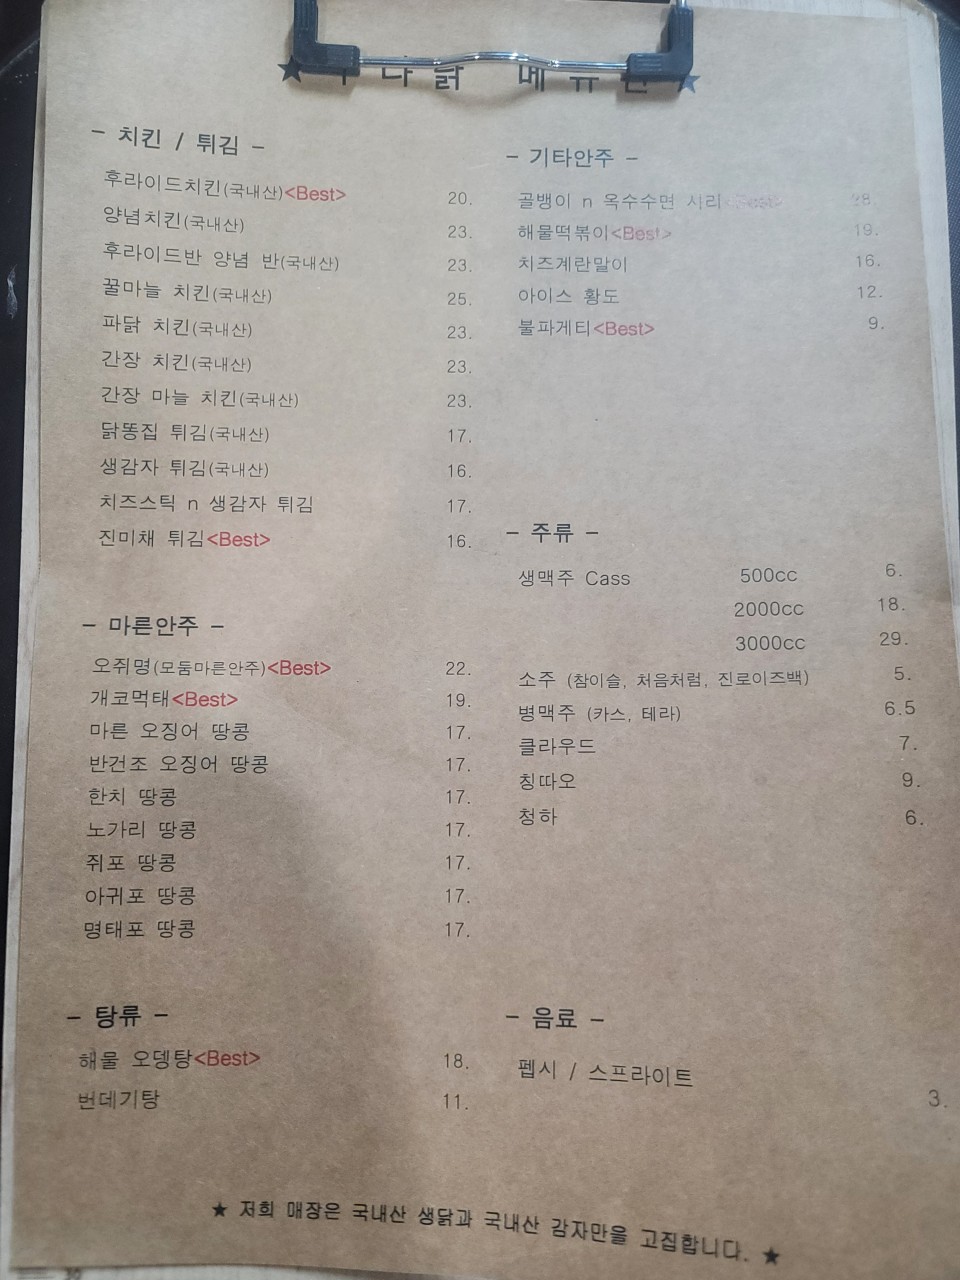 닭 메뉴판
- 치킨 / 튀김 -
후라이드치킨(국내산)<Best> 20.
양념치킨(국내산) 23.
후라이드반 양념 반(국내산) 23.
꿀마늘 치킨(국내산) 25.
파닭 치킨(국내산) 23.
간장 치킨(국내산) 23.
간장 마늘 치킨(국내산) 23.
닭똥집 튀김(국내산) 17.
생감자 튀김(국내산) 16.
치즈스틱 n 생감자 튀김 17.
진미채 튀김<Best> 16.
- 마른안주 -
오쥐명(모둠마른안주)<Best> 22.
개코먹태<Best> 19.
마른 오징어 땅콩 17.
반건조 오징어 땅콩 17.
한치 땅콩 17.
노가리 땅콩 17.
쥐포 땅콩 17.
아귀포 땅콩 17.
명태포 땅콩 17.
- 탕류 -
해물 오뎅탕<Best> 18.
번데기탕 11.
- 기타안주 -
골뱅이 n 옥수수면 사리<Best>
해물떡볶이<Best> 19.
치즈계란말이 16.
아이스 황도 12.
불파게티<Best> 9.
- 주류 -
생맥주 Cass 500cc 6.
2000cc 18.
3000cc 29.
소주 (참이슬, 처음처럼, 진로이즈백) 5.
병맥주 (카스, 테라) 6.5
클라우드 7.
칭따오 9.
청하 6.
- 음료 -
펩시 / 스프라이트 3.
★ 저희 매장은 국내산 생닭과 국내산 감자만을 고집합니다. ★